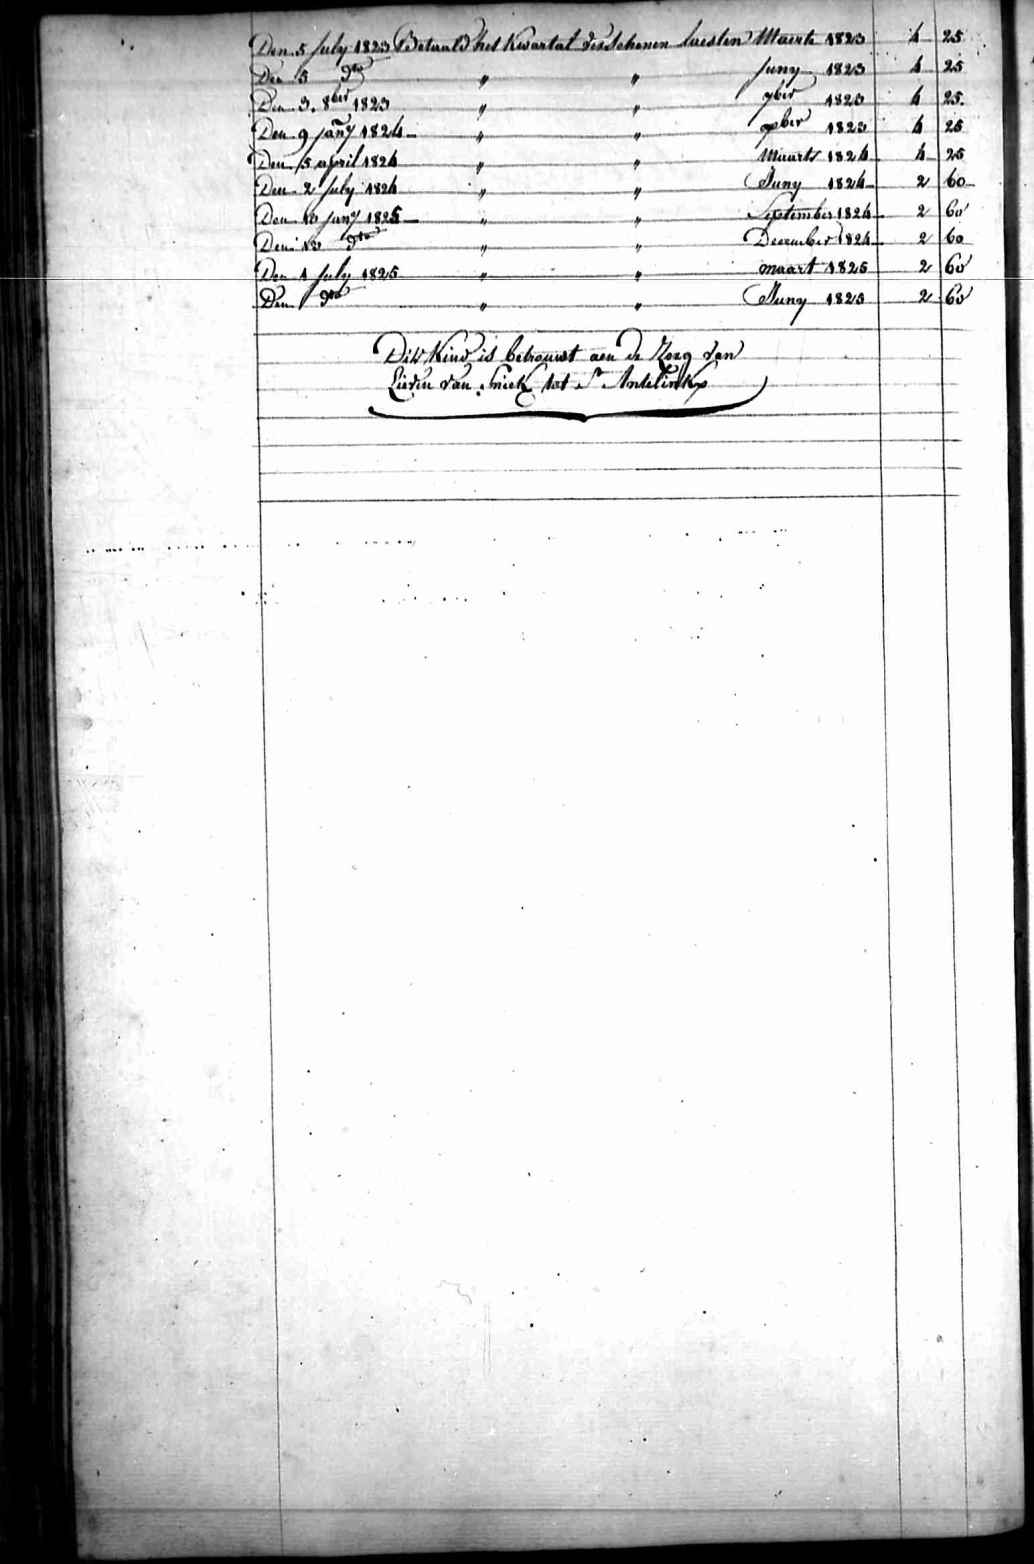 Den 5 July 1823 Betaald het Kwartal verschenen luesten Maerte 1823 4 25
Den 5 dto " " Juny 1823 4 25
Den 3. 8ber 1823 " " 7ber 1823 4 25.
Den 9 jany 1824 " " xber 1823 4 25
Den 5 april 1824 " " Maarts 1824 4 25
Den 2 July 1824 " " Juny 1824 2 60
Den 13 jany 1825 " " September 1824 2 60
Den 13 dto " " December 1824 2 60
Den 4 July 1825 " " maart 1825 2 60
Den dto " " Juny 1825 2 60
Dit Kind is betrouwt aen de Zorg van
Lieven van Snick tot St Antelinkx